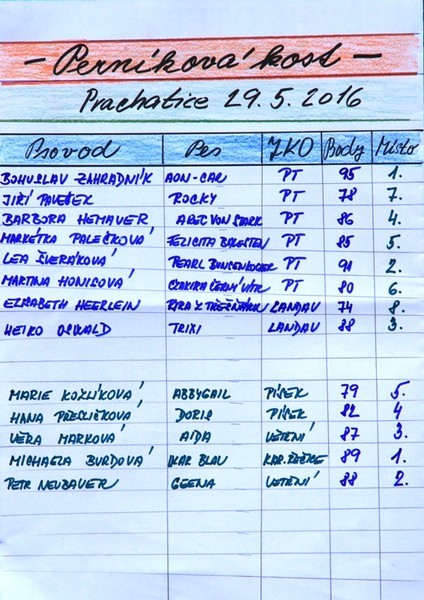 - Perníková kost -
Prachatice 29.5.2016
Psovod Pes ZKO Body Místo
BOHUSLAV ZAHRADNÍK AON-CAR PT 95 1.
JIŘÍ PAVEŠEK ROCKY PT 78 7.
BARBORA HEMAUER AREC VON STARK PT 86 4.
MARKÉTKA PALEČKOVÁ FELICITA PT 85 5.
LEA ŠVERÁKOVÁ PEARL PT 91 2.
MARTINA HONISOVÁ ČERNÝ VÍTR PT 80 6.
ELZABETH HEERLEIN LANDAU 74 8.
HEIKO OSWALD TRIXI LANDAU 88 3.
MARIE KOŽLÍKOVÁ ABBYGAIL PÍSEK 79 5.
HANA PŘESLIČKOVÁ DORIS PÍSEK 82 4
VĚRA MARKOVÁ AIDA VĚTŘNÍ 87 3.
MICHAELA BURDOVÁ IKAR BLAU KAP. ŘEČICE 89 1.
PETR NEUBAUER GEENA VĚTŘNÍ 88 2.